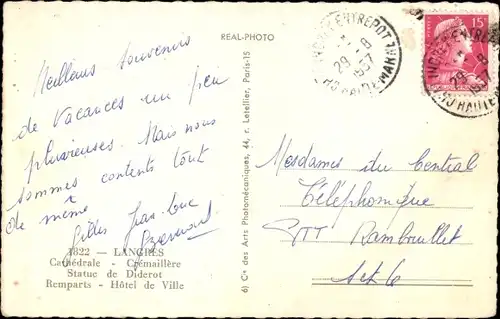 REAL-PHOTO
15
29 - 8
1957
HAUTE-MARNE
Meilleurs Souvenirs
de vacances un peu
pluvieuses. Mais nous
sommes contents tout
de même
Gilles Jean-Luc
1822 — LANGRES
Cathédrale - Crémaillère
Statue de Diderot
Remparts - Hôtel de Ville
6) Cie des Arts Photomécaniques, 44, r. Letellier, Paris-15
Mesdames du Central
Téléphonique
PTT Rambouillet
S et O